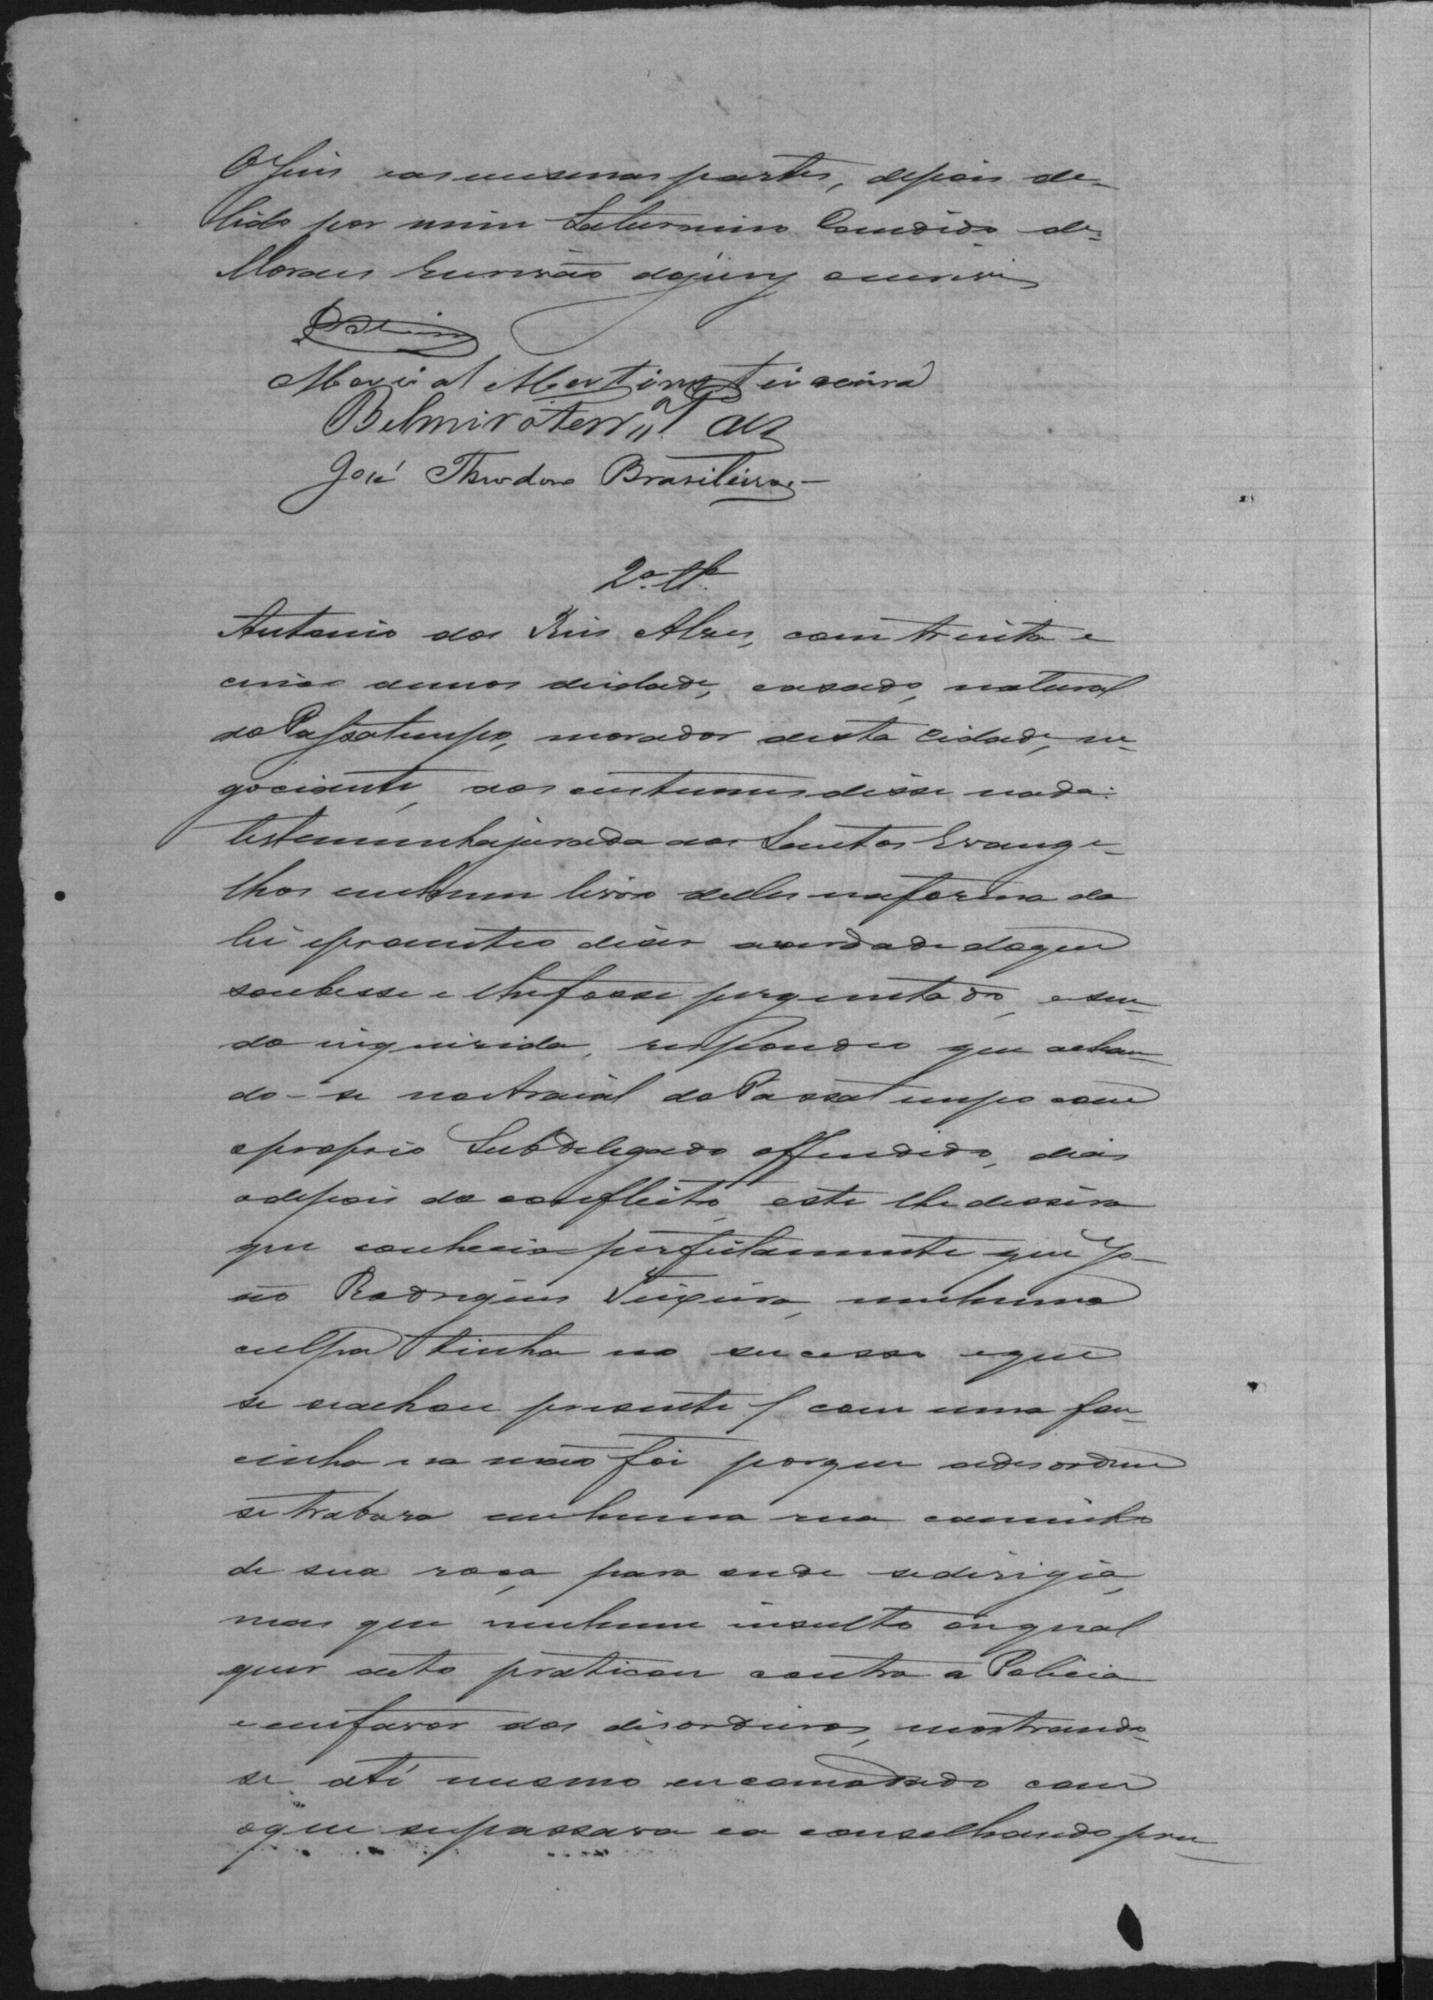 O Juis eas mesmas partes, depois de-
lido por mim Saturnino Candido de-
Moraes Escrivão dojury escrevi
Marcial Martins Teixeira
Belmiro Ferr.ª Paz
José Theodoro Brasileiro
2ª Tª
Antonio dos Reis Alves, com trinta e
cinco annos deidade, casado, natural
do Passatempo, morador desta Cidade, ne-
gociante, aos custumes disse nada:
testemunha jurada aos Santos Evange-
lhos emhum livro delles naforma da
lei eprometteo diser averdade doque
soubesse e lhefosse perguntado, esen-
do inquirida, respondeo que achan-
do-se noArraial do Passatempo com
oproprio Subdelegado offendido, dias
odepois do conflicto, este lhe dissera
que conhecia perfeitamente que Jo-
ão Rodrigues Teixeira, nenhuma
culpa tinha no sucesso eque
se seachou presente / com uma fou-
cinha na mão foi porque adesordem
setrabara emhuma rua caminho
de sua roça, para onde sedirigia,
mas que nenhum insulto ouqual
quer acto praticou contra a Policia
e emfavor dos disordeiros, mostrando-
se até mesmo encomodado com
oque sepassava ea conselhando pru-